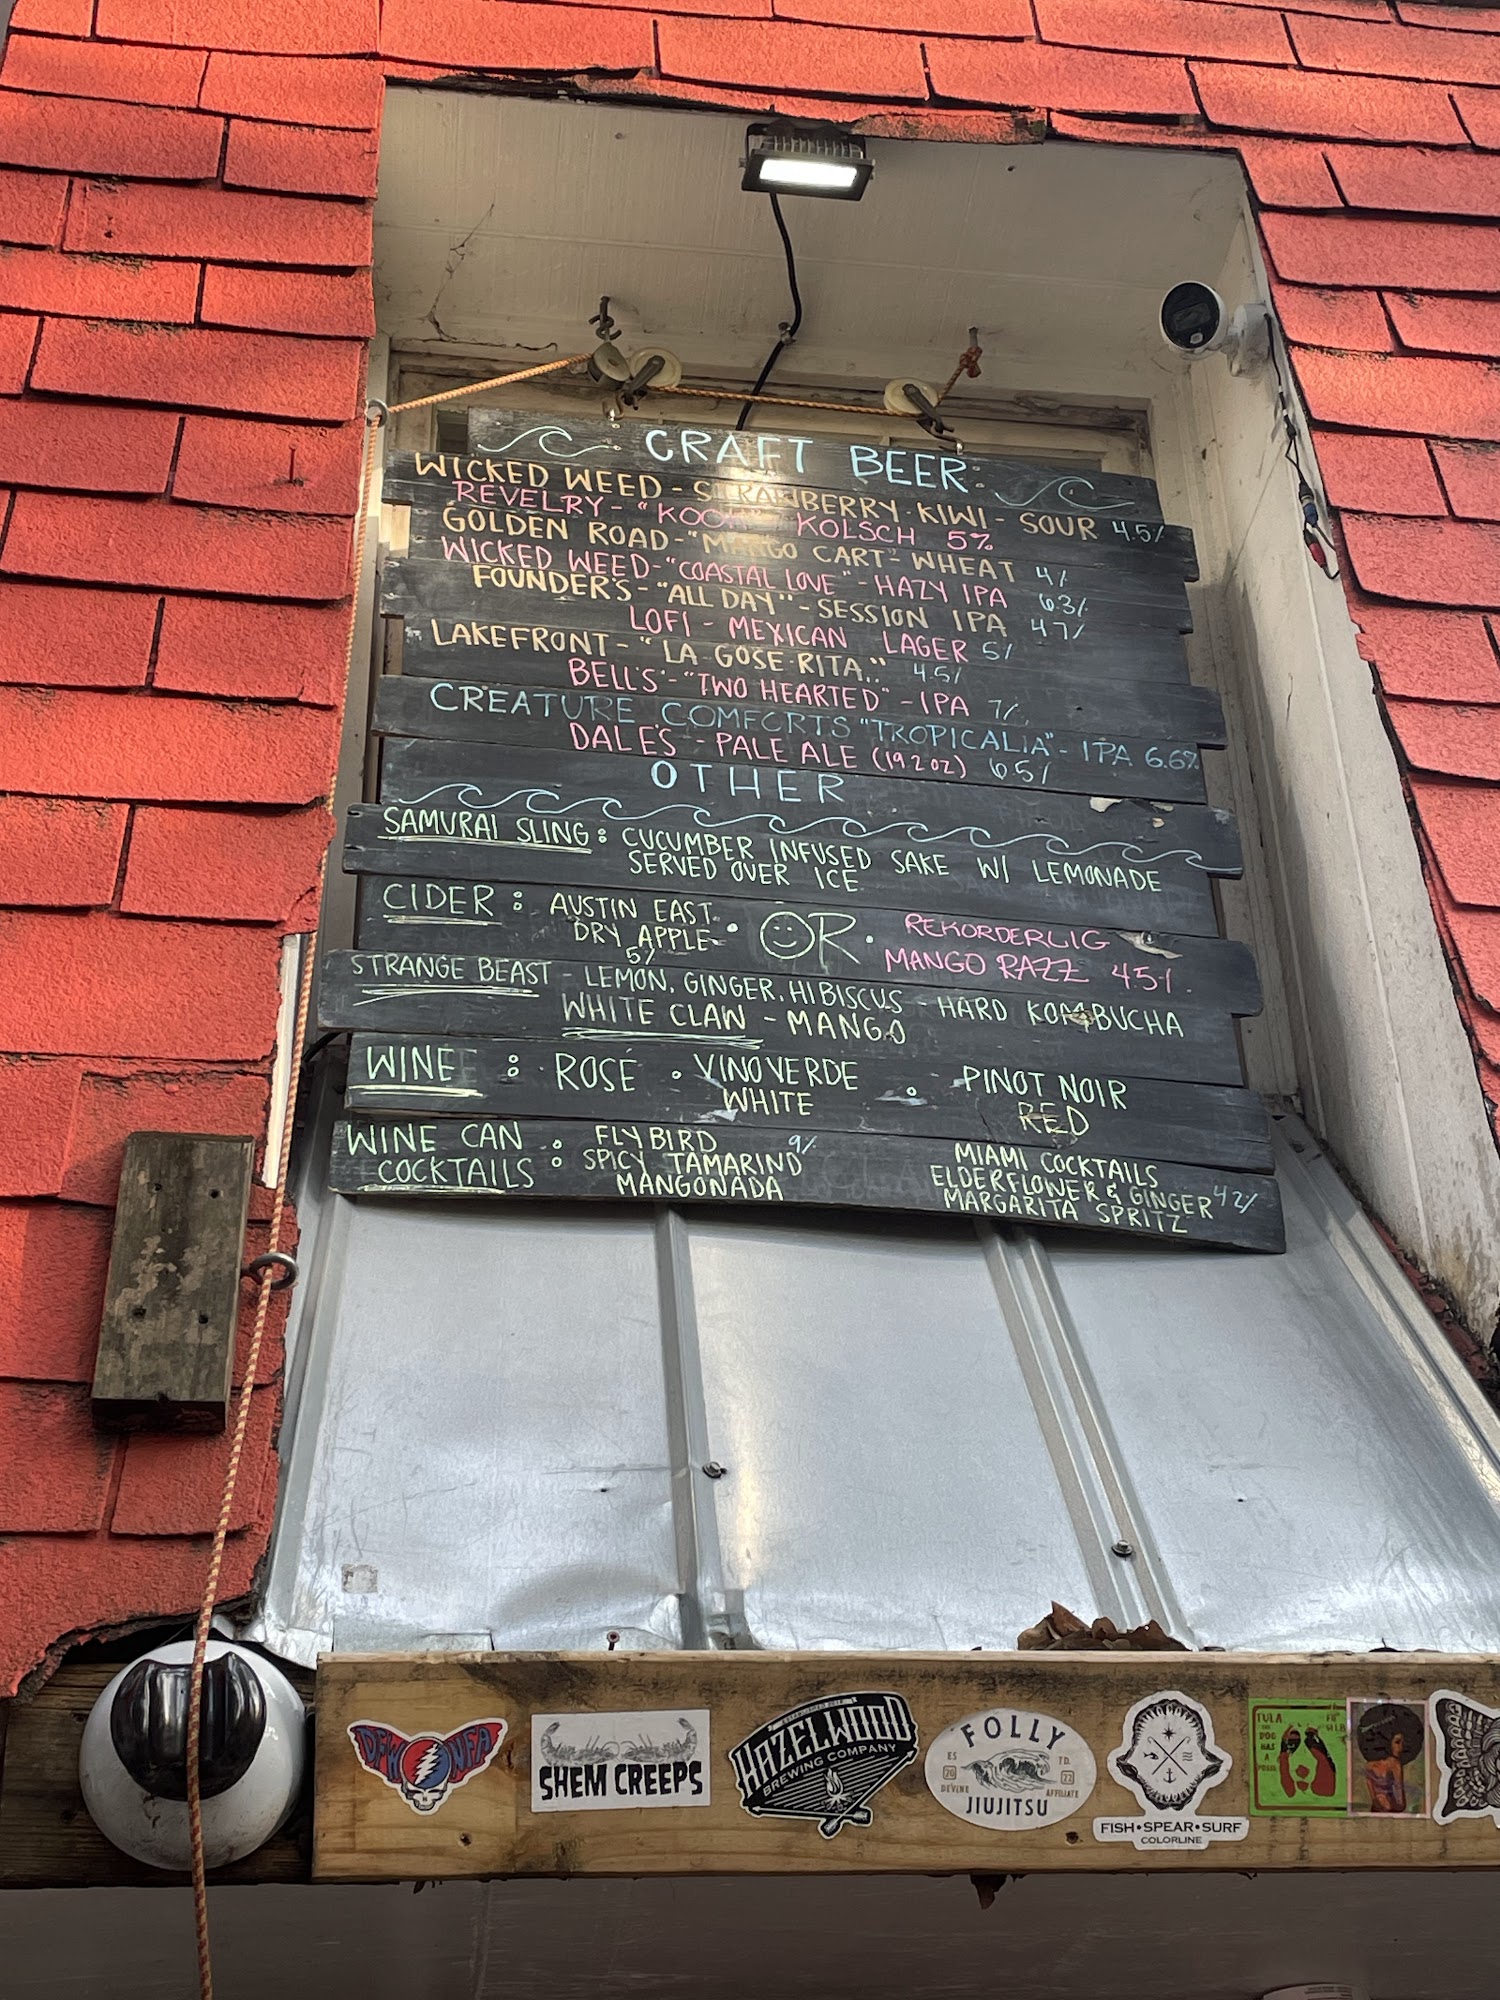 CRAFT BEER:
WICKED WEED - STRAWBERRY·KIWI - SOUR 4.5%
REVELRY - "KOOK" KOLSCH 5%
GOLDEN ROAD - "MANGO CART" - WHEAT 4%
WICKED WEED - "COASTAL LOVE" - HAZY IPA 6.3%
FOUNDER'S - "ALL DAY" - SESSION IPA 4.7%
LOFI - MEXICAN LAGER 5%
LAKEFRONT - "LA GOSE·RITA." 4.5%
BELL'S - "TWO HEARTED" - IPA 7%
CREATURE COMFORTS "TROPICALIA" - IPA 6.6%
DALE'S - PALE ALE (19.2 OZ) 6.5%
OTHER
SAMURAI SLING: CUCUMBER INFUSED SAKE W/ LEMONADE
SERVED OVER ICE
CIDER: AUSTIN EAST · OR · REKORDERLIG
DRY APPLE MANGO RAZZ 4.5%
5%
STRANGE BEAST - LEMON, GINGER, HIBISCUS - HARD KOMBUCHA
WHITE CLAW - MANGO
WINE: · ROSÉ · VINO VERDE · PINOT NOIR
WHITE RED
WINE CAN : FLYBIRD 9% MIAMI COCKTAILS
COCKTAILS SPICY TAMARIND ELDERFLOWER & GINGER 4.2%
MANGONADA MARGARITA SPRITZ
DFW NFA
SHEM CREEPS
HAZELWOOD
BREWING COMPANY
FOLLY
ES TD.
20 22
DEVINE AFFILIATE
JIUJITSU
FISH·SPEAR·SURF
COLORLINE
TULA
THE
DOG
HAS A
POSSE